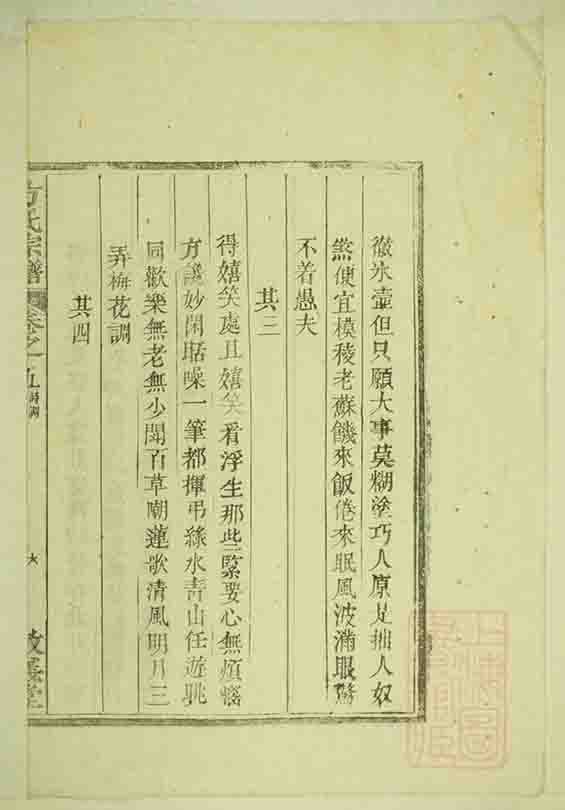 徹氷壺但只願大事莫糊塗巧人原是拙人奴
煞便宜模稜老蘇饑來飯倦來眠風波滿眼
不着愚夫
其三
得嬉笑處且嬉笑看浮生那些緊要心無煩惱
方識妙閑聒噪一筆都揮弔綠水青山任遊眺
同歡樂無老無少閙百草嘲蓮歌清風明月三
弄梅花調
其四
方氏宗譜 卷之 五 詩詞
敦
堂
上海圖
館